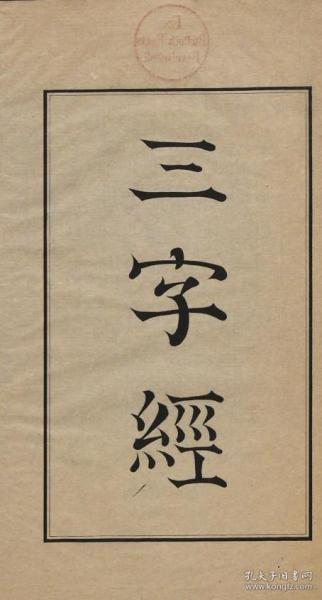 三字經
孔夫子旧书网
www.kongfz.com